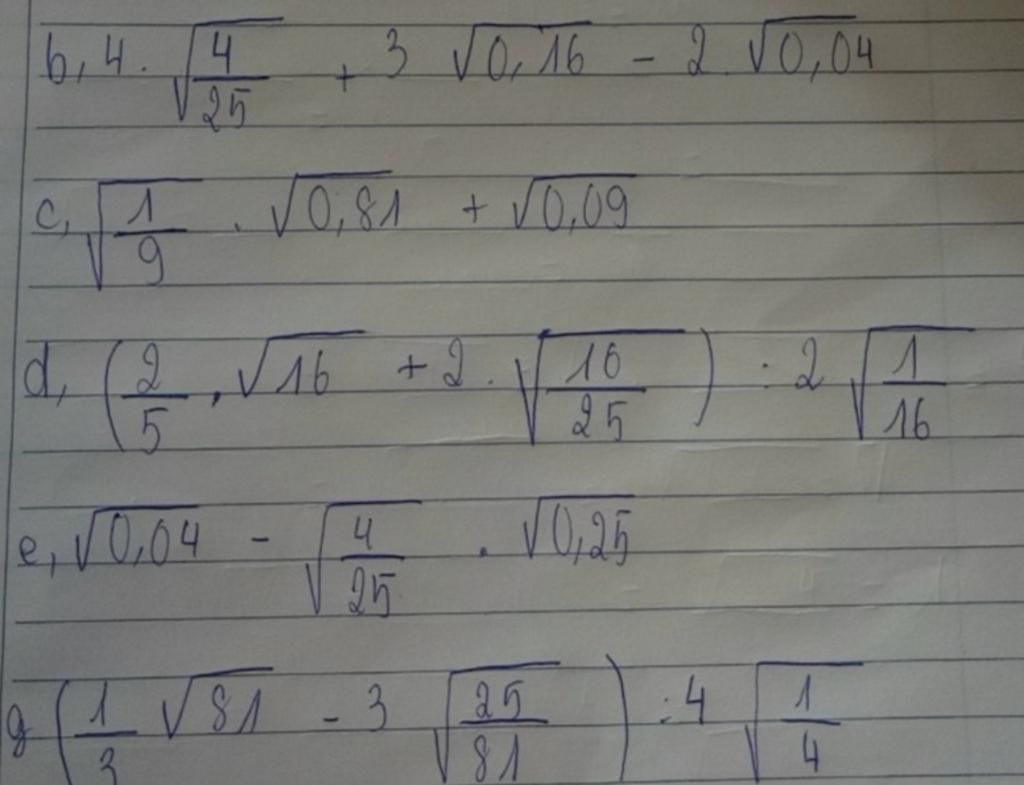 b, 4. √(4/25) + 3 √0,16 - 2. √0,04
c, √(1/9) . √0,81 + √0,09
d, (2/5 . √16 + 2. √(16/25)) : 2 √(1/16)
e, √0,04 - √(4/25) . √0,25
g (1/3 √81 - 3 √(25/81)) : 4 √(1/4)